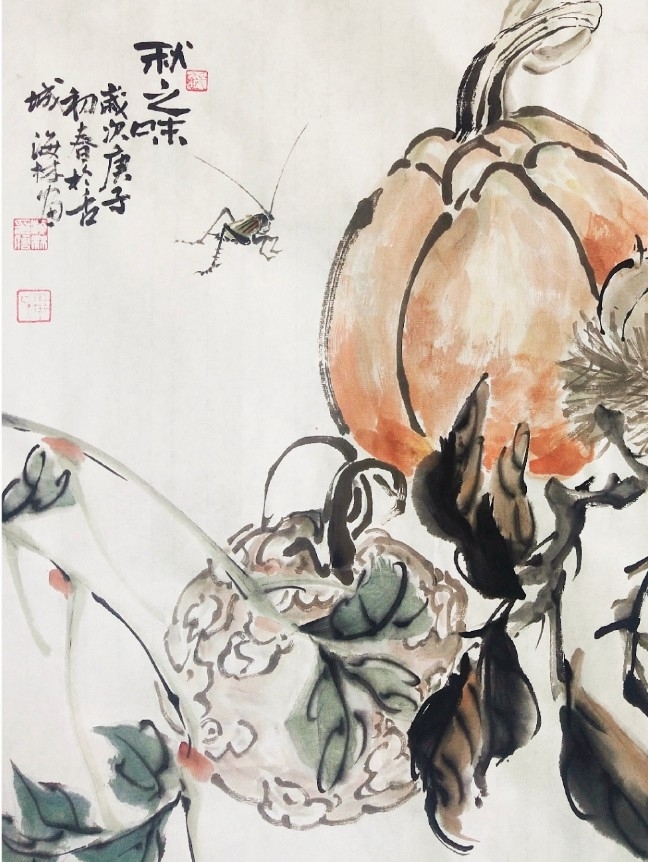 秋之味
歲次庚子
初春於古
城 海林畫